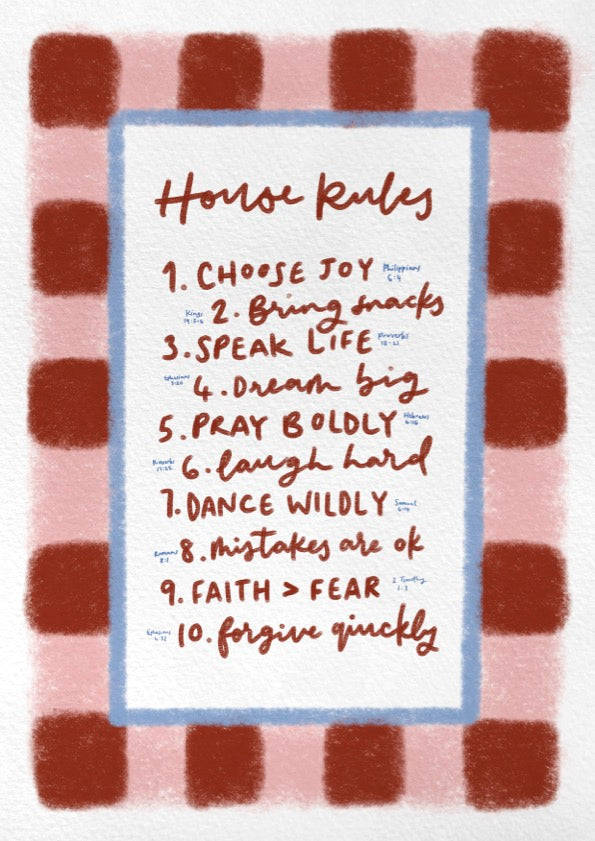 House Rules
1. CHOOSE JOY
Philippians
2. Bring snacks
Kings
19:5-6
3. SPEAK LIFE
Proverbs
18:21
4. Dream big
Ephesians
3:20
5. PRAY BOLDLY
Hebrews
6. laugh hard
Proverbs
7. DANCE WILDLY
Samuel
8. mistakes are ok
Romans
8:1
9. FAITH > FEAR
2 Timothy
10. forgive quickly
Ephesians
4:32